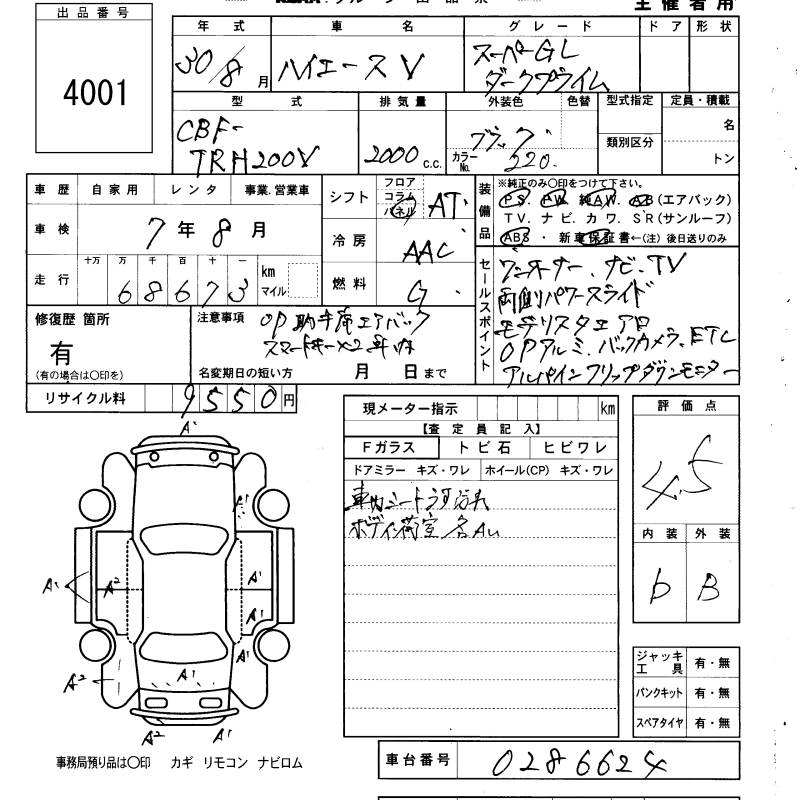 主催者用
出品番号
4001
年式 車名 グレード ドア 形状
30/8月 ハイエースV スーパーGL
ダークプライム
型式 排気量 外装色 色替 型式指定 定員・積載
CBF-
TRH200V 2000 c.c. ブラック カラーNo. 220. 類別区分 名
トン
車歴 自家用 レンタ 事業.営業車
車検 7年8月
走行 十万 万 千 百 十 一
68673 km マイル
シフト フロア コラム パネル AT
冷房 AAC
燃料 G
装備品 ※純正のみ〇印をつけて下さい。
PS. PW. 純AW. AB(エアバック)
TV. ナビ. カワ. SR(サンルーフ)
ABS ・ 新車保証書←(注)後日送りのみ
セールスポイント
ワンオーナー、ナビ、TV
両側パワースライド
モデリスタエアロ
OPアルミ、バックカメラ、ETC
アルパインフリップダウンモニター
修復歴 箇所
有
(有の場合は〇印を)
注意事項 OP助手席エアバック
スマートキー×2
名変期日の短い方 月 日まで
リサイクル料 9550円
現メーター指示 km
【査定員記入】
Fガラス トビ石 ヒビワレ
ドアミラー キズ・ワレ ホイール(CP) キズ・ワレ
車内シート
ボディ荷室各AU
評価点
4.5
内装 外装
b B
A1
A1
A1 A2 A1
A1
A1
A2 A1
A2 A1
ジャッキ工具 有・無
パンクキット 有・無
スペアタイヤ 有・無
事務局預り品は〇印 カギ リモコン ナビロム
車台番号 0286624